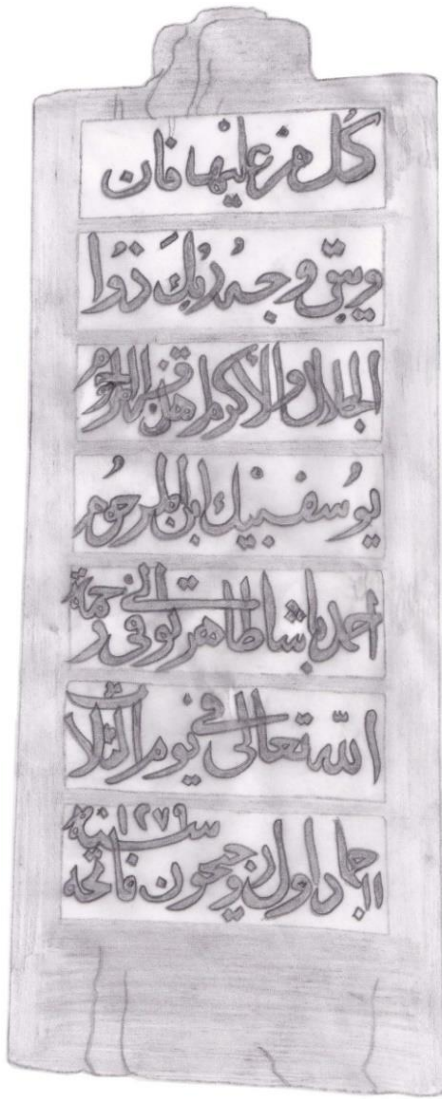 كُل من عليها فان
ويبقى وجه رَبُك ذوُا
الجلال والأكرام هذا قبر المرحوم
يوُسف بيك ابن المرحوُم
احمد باشا طاهر توفى الى رحمة
اللّه تعالى في يوم الثلاث
جماد اول سنة ١٢٧٩ فاتحه